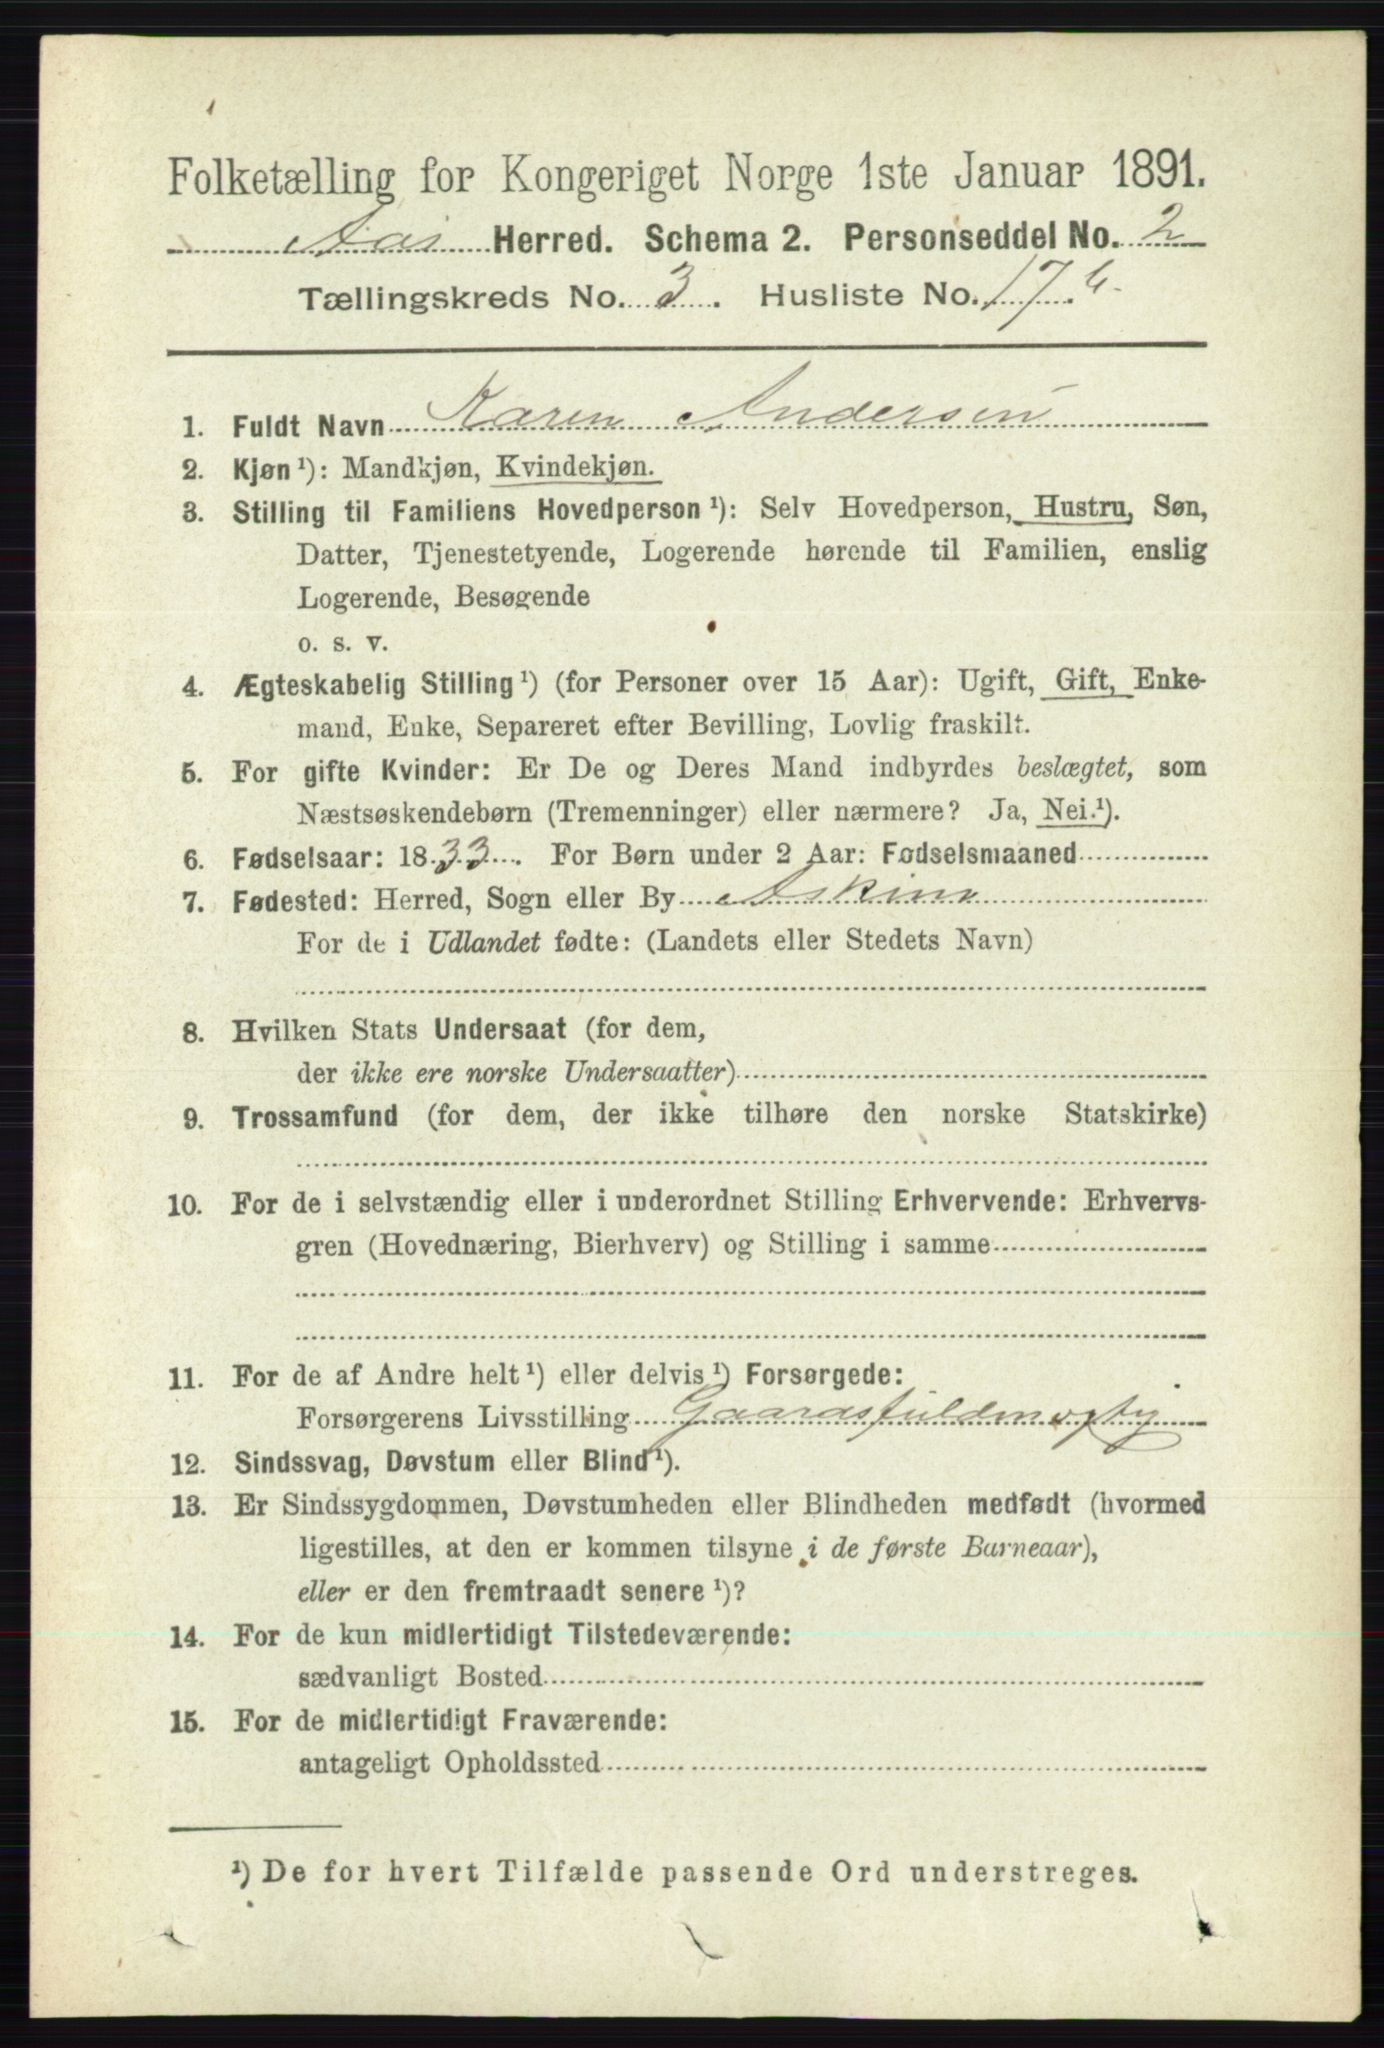 Folketælling for Kongeriget Norge 1ste Januar 1891.
Aas Herred. Schema 2. Personseddel No. 2
Tællingskreds No. 3. Husliste No. 17
1. Fuldt Navn Karen Andersen
2. Kjøn ¹): Mandkjøn, Kvindekjøn.
3. Stilling til Familiens Hovedperson ¹): Selv Hovedperson, Hustru, Søn,
Datter, Tjenestetyende, Logerende hørende til Familien, enslig
Logerende, Besøgende
o. s. v.
4. Ægteskabelig Stilling ¹) (for Personer over 15 Aar): Ugift, Gift, Enke-
mand, Enke, Separeret efter Bevilling, Lovlig fraskilt.
5. For gifte Kvinder: Er De og Deres Mand indbyrdes beslægtet, som
Næstsøskendebørn (Tremenninger) eller nærmere? Ja, Nei.¹).
6. Fødselsaar: 1833. For Børn under 2 Aar: Fødselsmaaned
7. Fødested: Herred, Sogn eller By Askim
For de i Udlandet fødte: (Landets eller Stedets Navn)
8. Hvilken Stats Undersaat (for dem,
der ikke ere norske Undersaatter)
9. Trossamfund (for dem, der ikke tilhøre den norske Statskirke)
10. For de i selvstændig eller i underordnet Stilling Erhvervende: Erhvervs-
gren (Hovednæring, Bierhverv) og Stilling i samme
11. For de af Andre helt ¹) eller delvis ¹) Forsørgede:
Forsørgerens Livsstilling
12. Sindssvag, Døvstum eller Blind ¹).
13. Er Sindssygdommen, Døvstumheden eller Blindheden medfødt (hvormed
ligestilles, at den er kommen tilsyne i de første Barneaar),
eller er den fremtraadt senere ¹)?
14. For de kun midlertidigt Tilstedeværende:
sædvanligt Bosted
15. For de midlertidigt Fraværende:
antageligt Opholdssted
¹) De for hvert Tilfælde passende Ord understreges.